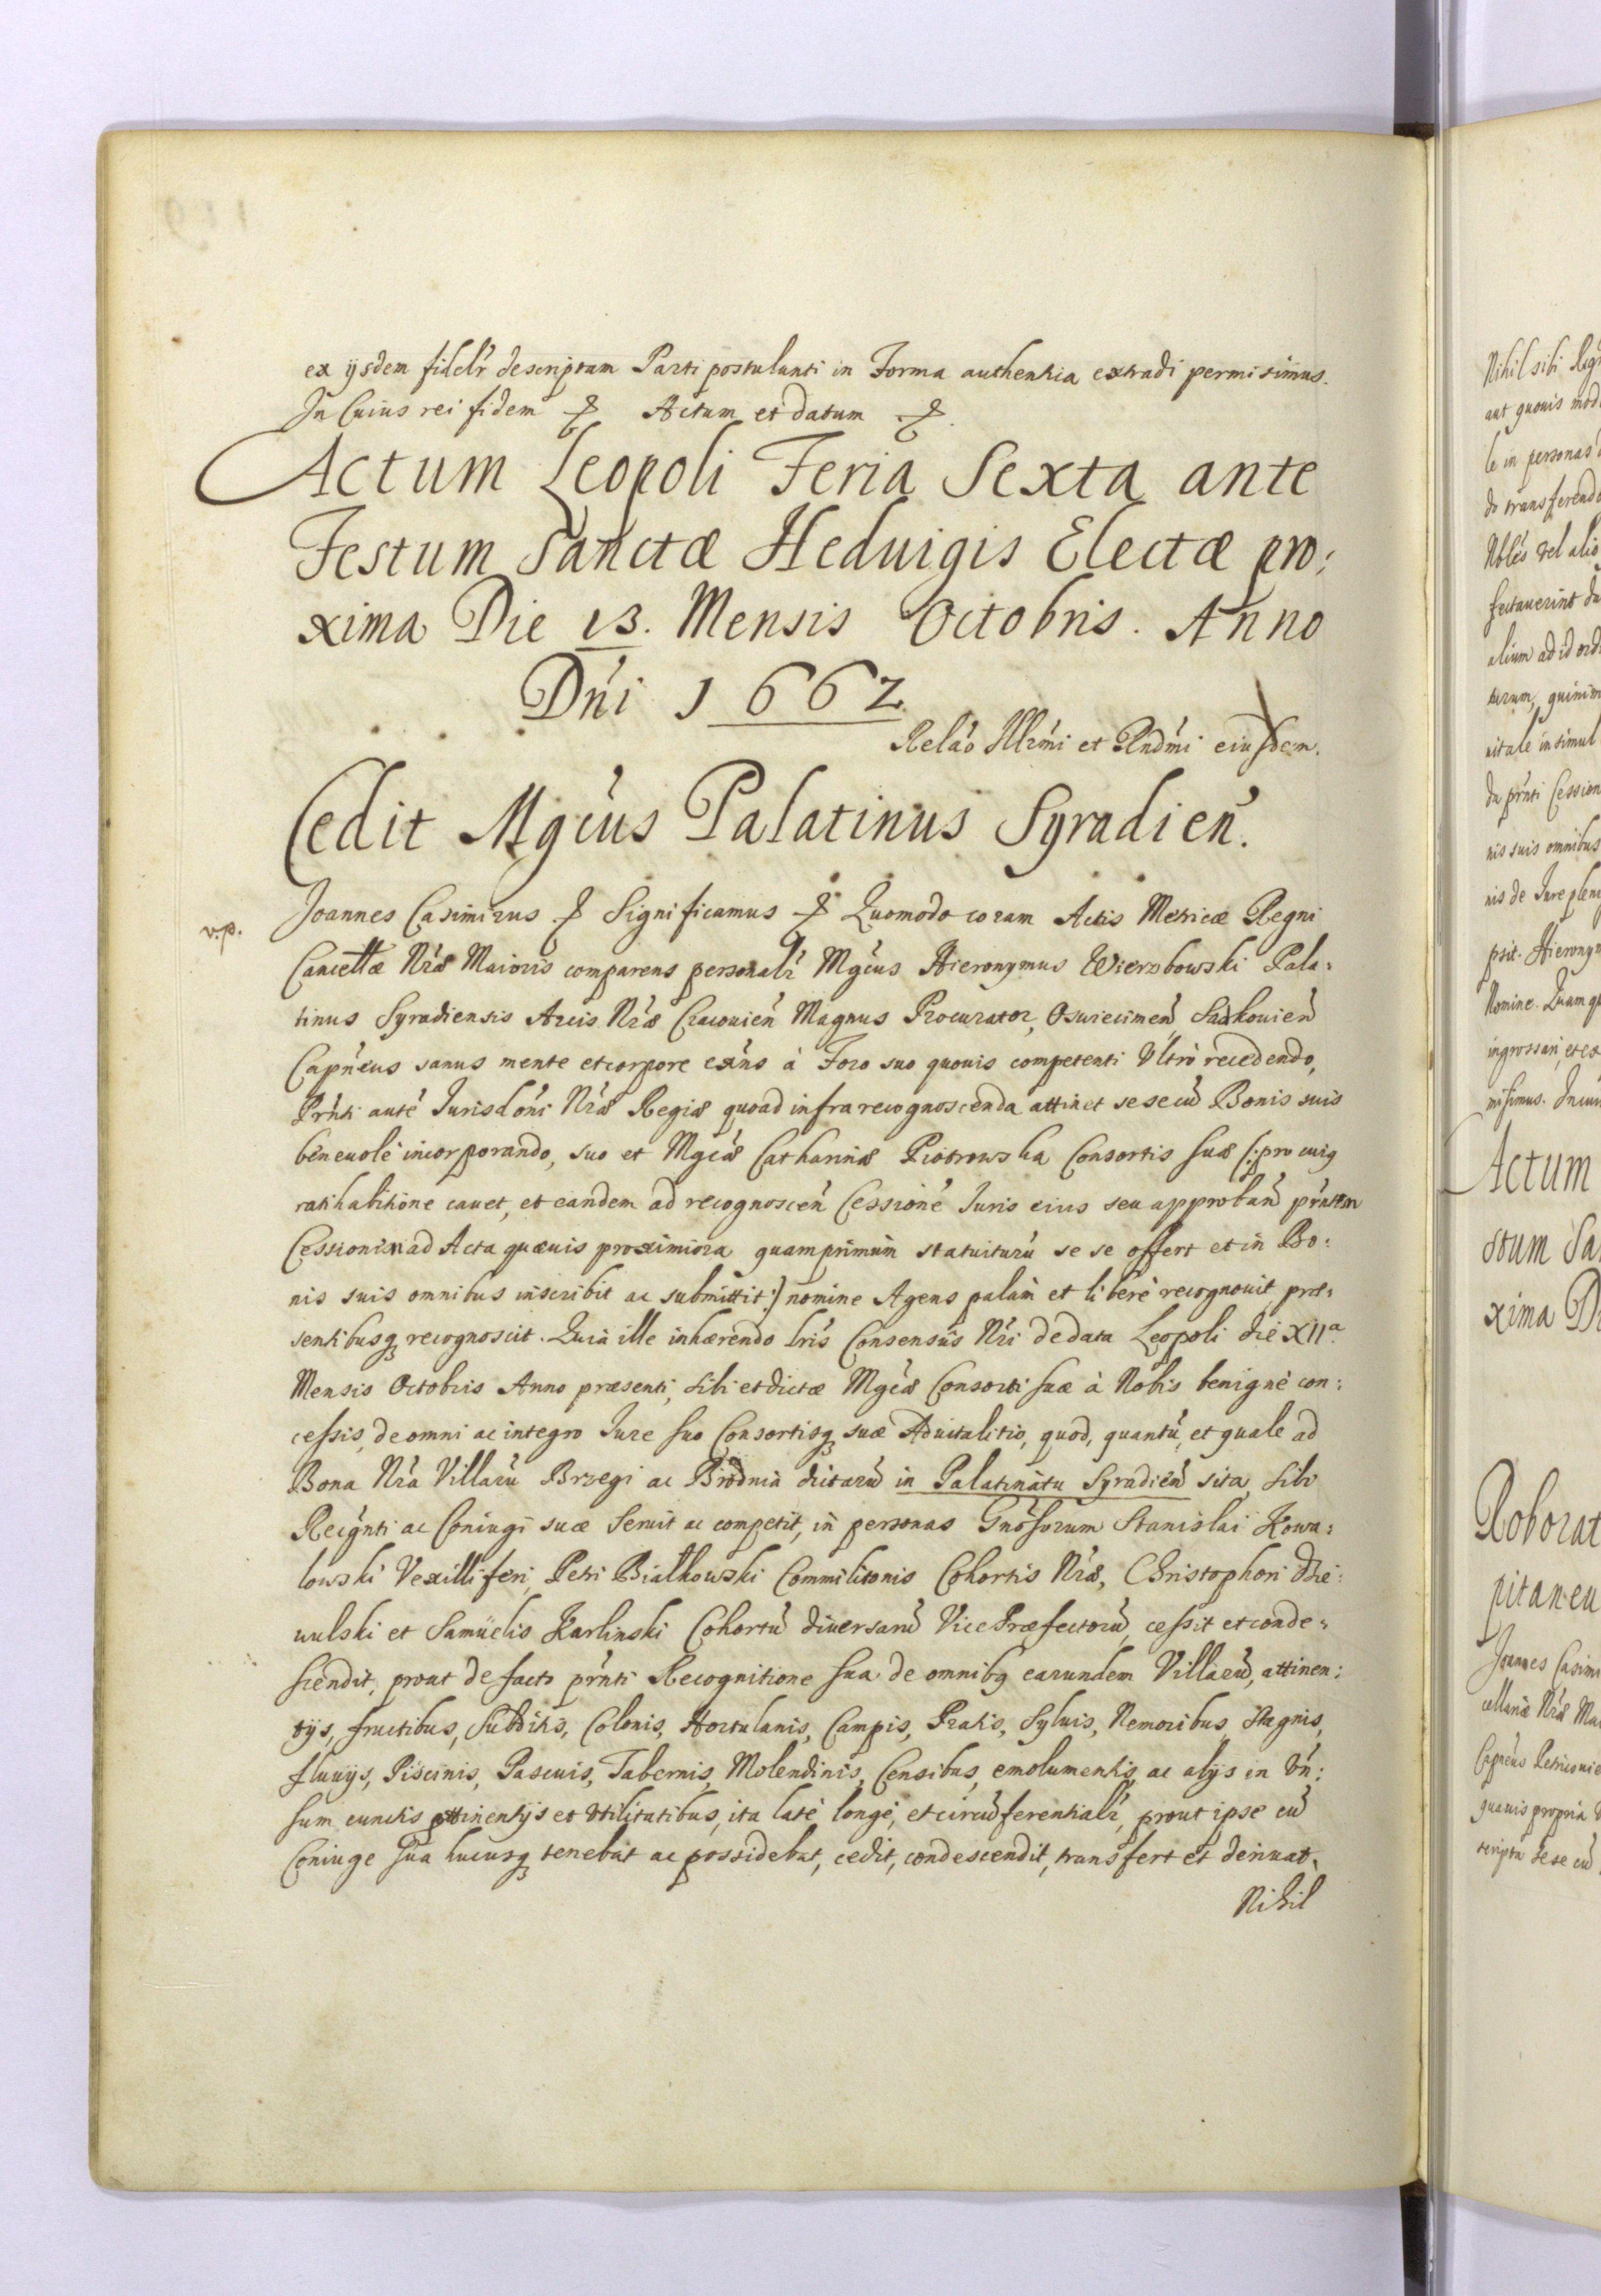 ex ijsdem fidelr descriptum Parti postulanti in Forma authentica extradi permisimus.
In Cuius rei fidem & Actum et datum &.
Actum Leopoli Feria Sexta ante
Festum Sanctæ Heduigis Electæ pro:
xima Die 13. Mensis Octobris. Anno
Dńi 1662
Relaó Illrm̃i et Rndm̃i eiusdem.
Cedit Mgcus Palatinus Syradien̄.
v.p.
Joannes Casimirus & Significamus & Quomodo coram Actis Metricæ Regni
Cancellæ Nræ Maioris comparens personalr Mgcus Hieronymus Wierzbowski Pala:
tinus Syradiensis Arcis Nræ Cracouien̄ Magnus Procurator, Oswiecimen̄, Sadkouien̄
Capneus sanus mente et corpore exńs à Foro suo quouis competenti Vltrò recedendo,
Prńti autē Jurisdońi Nræ Regiæ quoad infra recognoscenda attinet se se cū Bonis suis
beneuolè incorporando, suo et Mgcæ Catharinæ Piotrowska Consortis suæ (: pro cuiꝫ
ratihabitione cauet, et eandem ad recognoscen̄ Cessionē Juris eius seu approban̄ prńtem
Cessionem ad Acta quæuis proximiora quamprimùm statuiturū se se offert et in Bo:
nis suis omnibus inscribit ac submittit:) nomine Agens palàm et liberè recognouit, præ:
sentibusꝗ recognoscit. Quia ille inhærendo lris Consensûs Nri de data Leopoli die XIIa
Mensis Octobris Anno præsenti, sibi et dictæ Mgcæ Consorti suæ à Nobis benignè con:
cessis, de omni ac integro Jure suo Consortisꝗ suæ Aduitalitio, quod, quantū, et quale ad
Bona Nra Villarū Brzegi ac Brodnia dictarū in Palatinatu Syradien̄ sita, sibi
Recgńti ac Coniugi suæ seruit ac competit, in personas Gnosorum Stanislai Kowa:
lowski Vexilliferi, Petri Białkowski Commilitonis Cohortis Nræ, Christophori Dzie:
wulski et Samüelis Karlinski Cohortū diuersarū Vice Præfectorū, cessit et conde:
scendit, prout de facto prńti Recognitione sua de omnibꝗ earundem Villarū, attinen:
tijs, fructibus, Subditis, Colonis, Hortulanis, Campis, Pratis, Syluis, Nemoribus, Stagnis,
fluuijs, Piscinis, Pascuis, Tabernis, Molendinis, Censibus, emolumentis, ac alijs in vń:
sum cunctis attinentijs et vtilitatibus, ita latè longè, et circūferentialr, prout ipse cū
Coniuge sua hucusꝗ tenebat ac possidebat, cedit, condescendit, transfert et deriuat.
Nihil
Nihil sibi
aut quouis mod
le in personas
do transferendo
Nobles vel alio
alium ad id ord
nitale in simul
da prńti Cession
nis suis omnibus
nis de Jure plen
psit. Hieronym
Nomine. Quam
ingrossari, et ex
misimus.
Actum
stum Sa
xima Di
Roborat
pitaneu
Joannes Casimi
cellariæ Nræ Ma
quauis propria
scripta se se cū